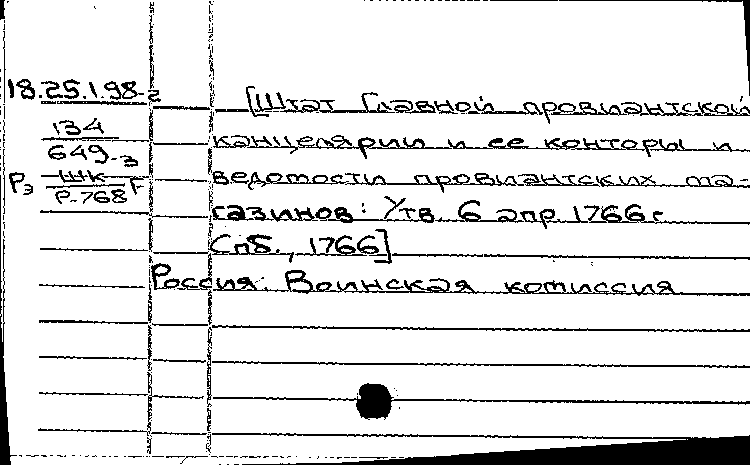 18.25.1.98-2 [Штат Главной провиантской
134 канцелярии и ее конторы и
649-3 ведомости провиантских ма-
Рэ ШК Г
Р-768
газинов: Утв. 6 апр. 1766 г.
Спб., 1766]
Россия. Воинская комиссия